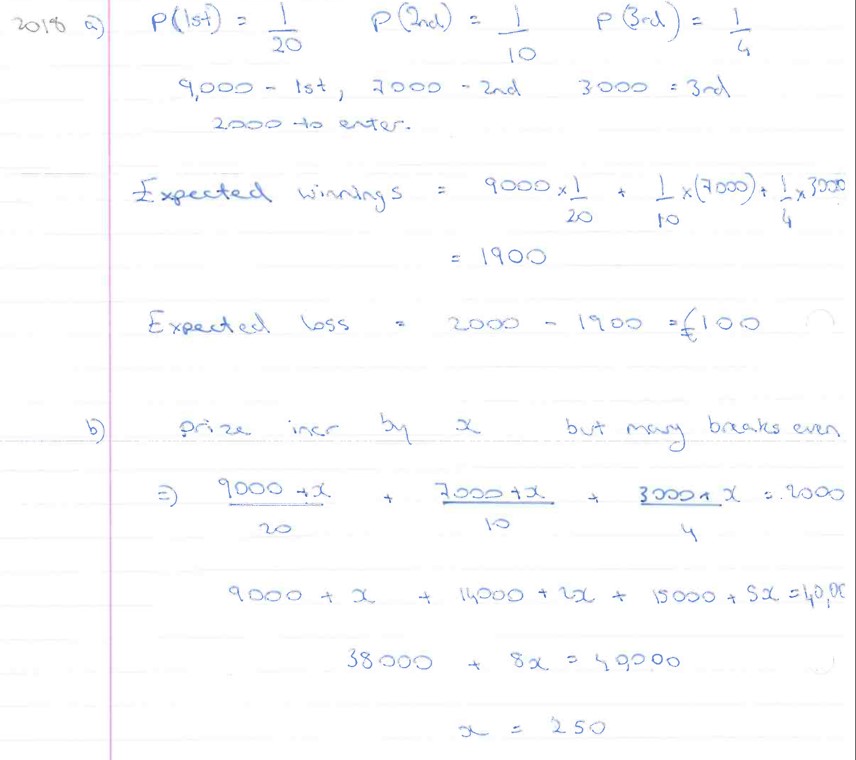 2018 a) P(1st) = 1/20 P(2nd) = 1/10 P(3rd) = 1/4
9,000 - 1st, 7000 - 2nd 3000 = 3rd
2000 to enter.
Expected winnings = 9000 × 1/20 + 1/10 × (7000) + 1/4 × 3000
= 1900
Expected loss = 2000 - 1900 = £100
b) prize incr by x but mary breaks even
=) 9000 + x/20 + 7000 + x/10 + 3000 + x/4 = 2000
9000 + x + 14000 + 2x + 15000 + 5x = 40,00
38000 + 8x = 40,000
x = 250